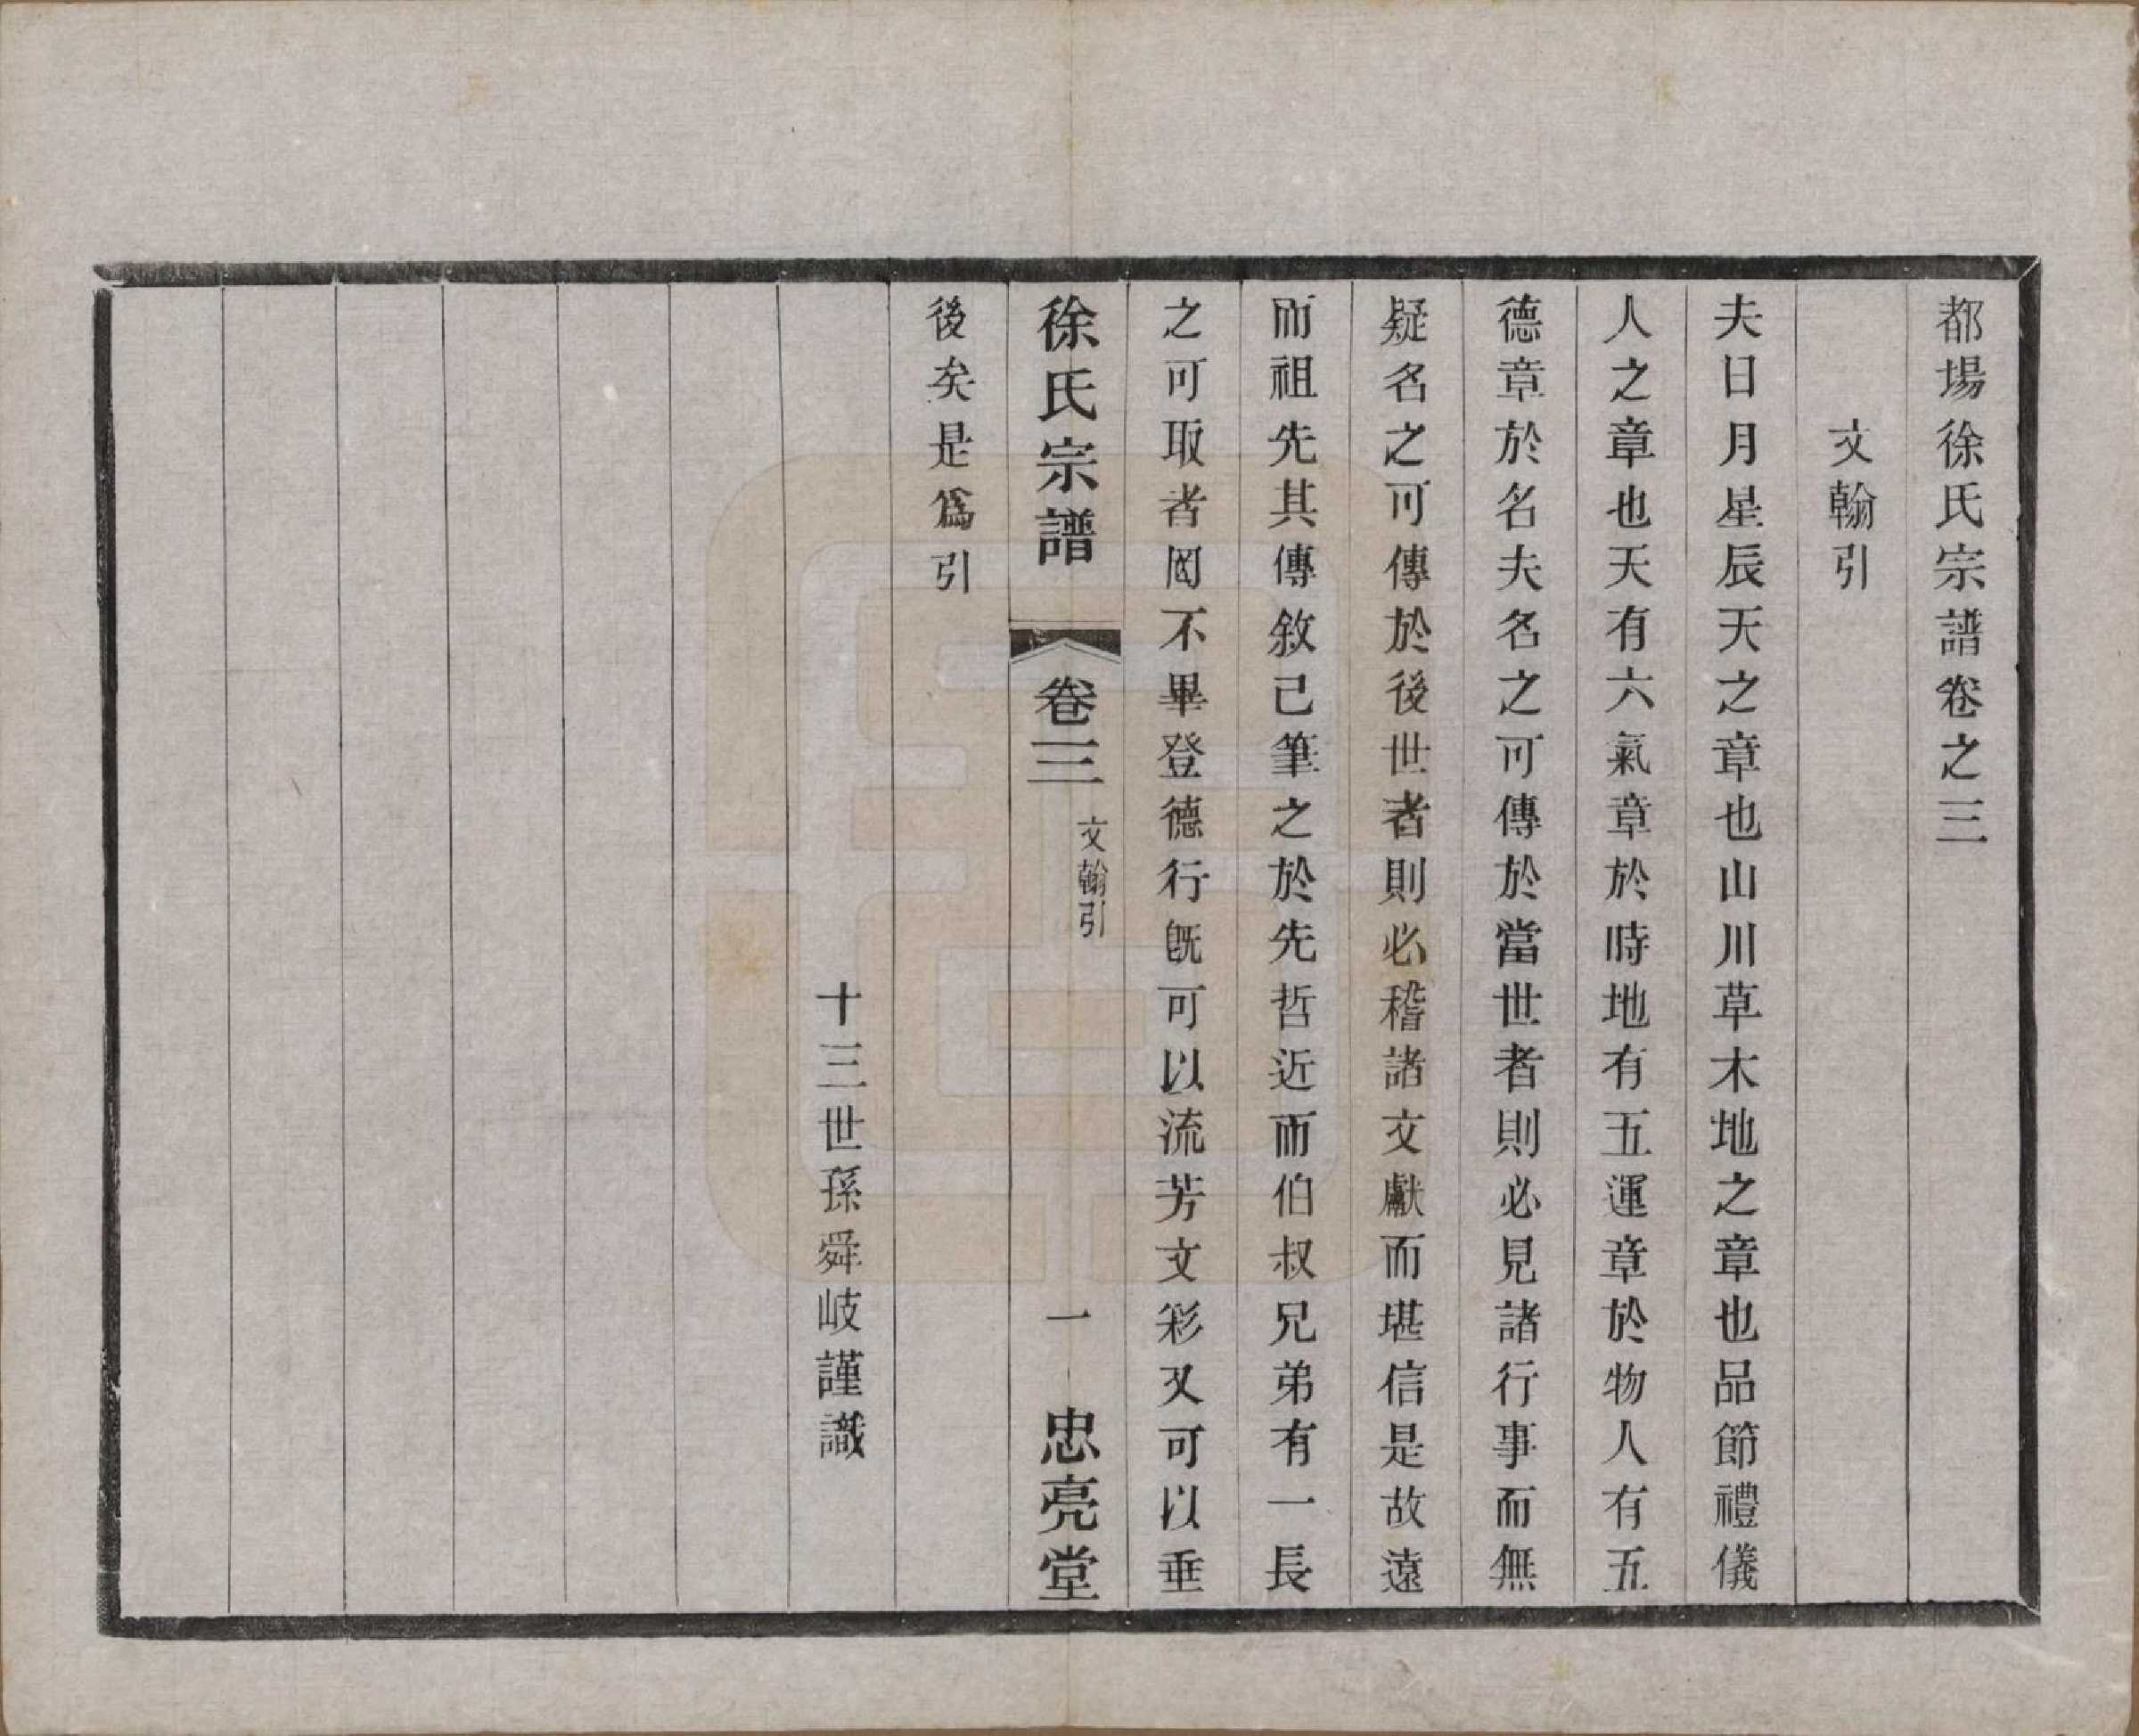 都場徐氏宗譜卷之三
文翰引
夫日月星辰天之章也山川草木地之章也品節禮儀
人之章也天有六氣章於時地有五運章於物人有五
德章於名夫名之可傳於當世者則必見諸行事而無
疑名之可傳於後世者則必稽諸文獻而堪信是故遠
而祖先其傳敘已筆之於先哲近而伯叔兄弟有一長
之可取者罔不畢登德行旣可以流芳文彩又可以垂
徐氏宗譜
卷三
文翰引
一
忠亮堂
後矣是爲引
十三世孫舜岐謹識